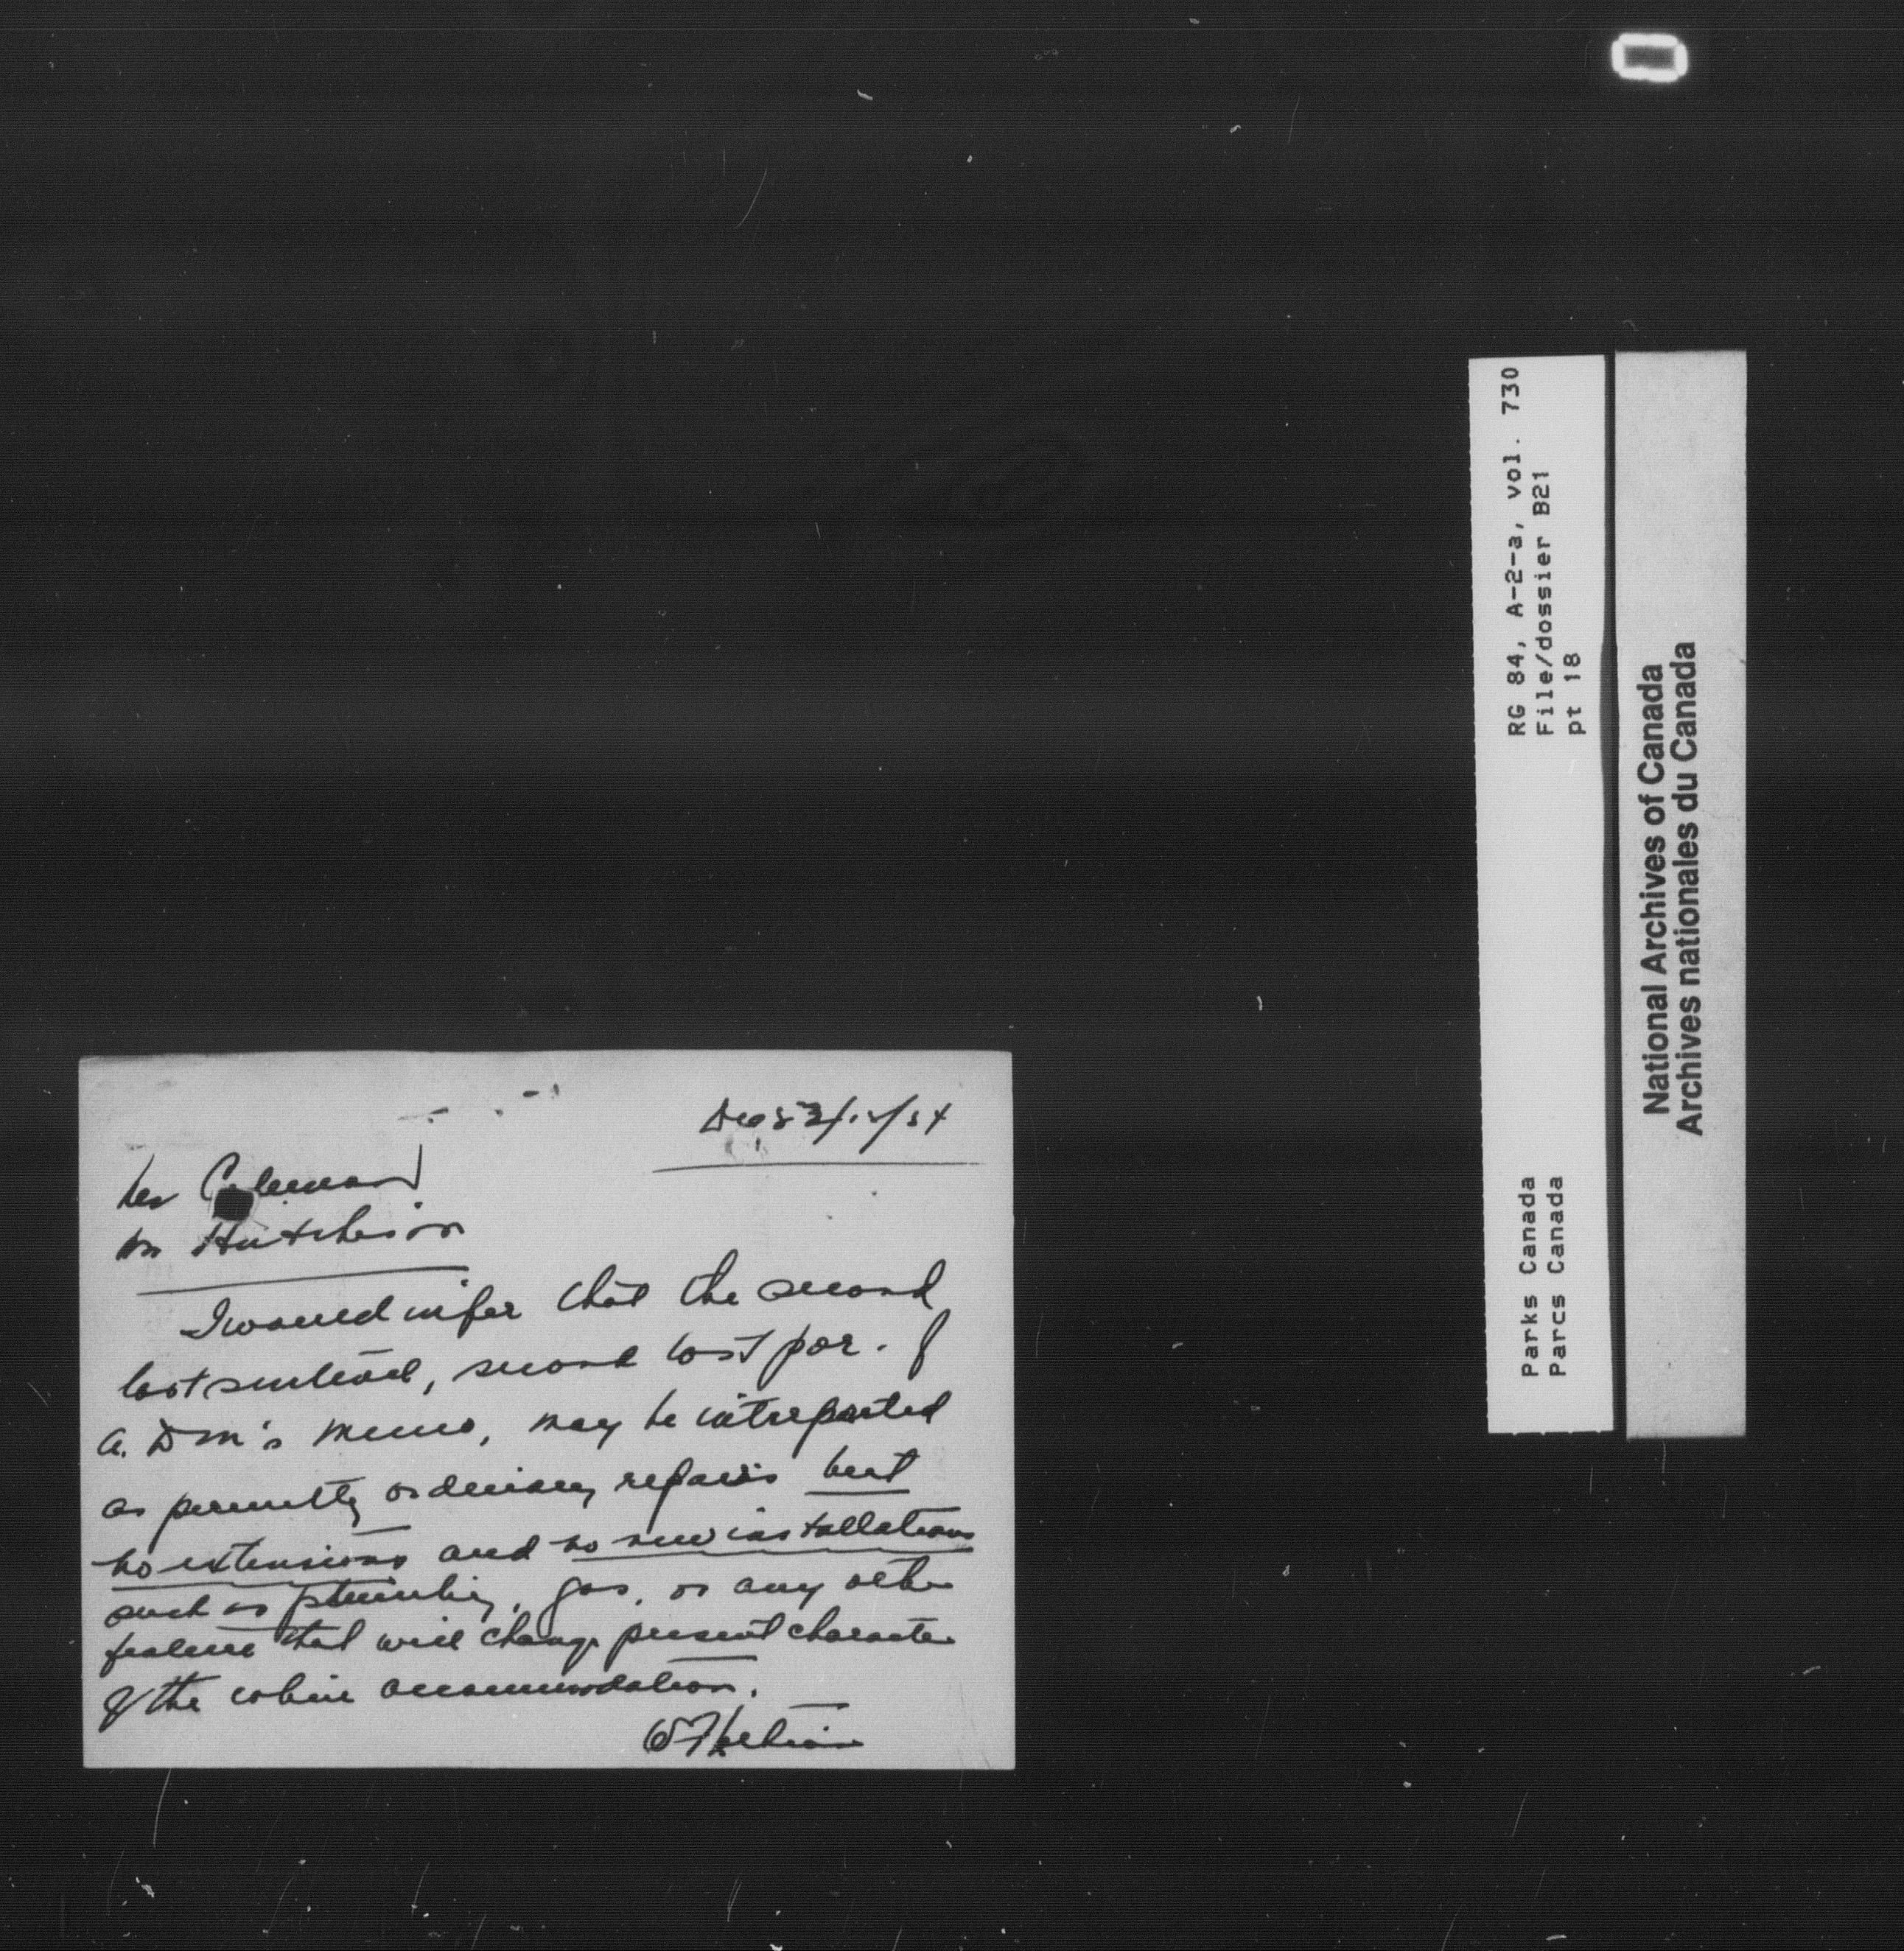 Mr Coleman
Mr Hutchison
I would infer that the second
last sentence, second last par. of
A. D M's memo, may be interpreted
as permitting ordinary repairs but
no extensions and no new installations
such as plumbing, gas, or any other
feature that will change present character
of the cabin accommodation.
RG 84, A-2-a, vol. 730
File/dossier B21
pt 18
Parks Canada
Parcs Canada
National Archives of Canada
Archives nationales du Canada